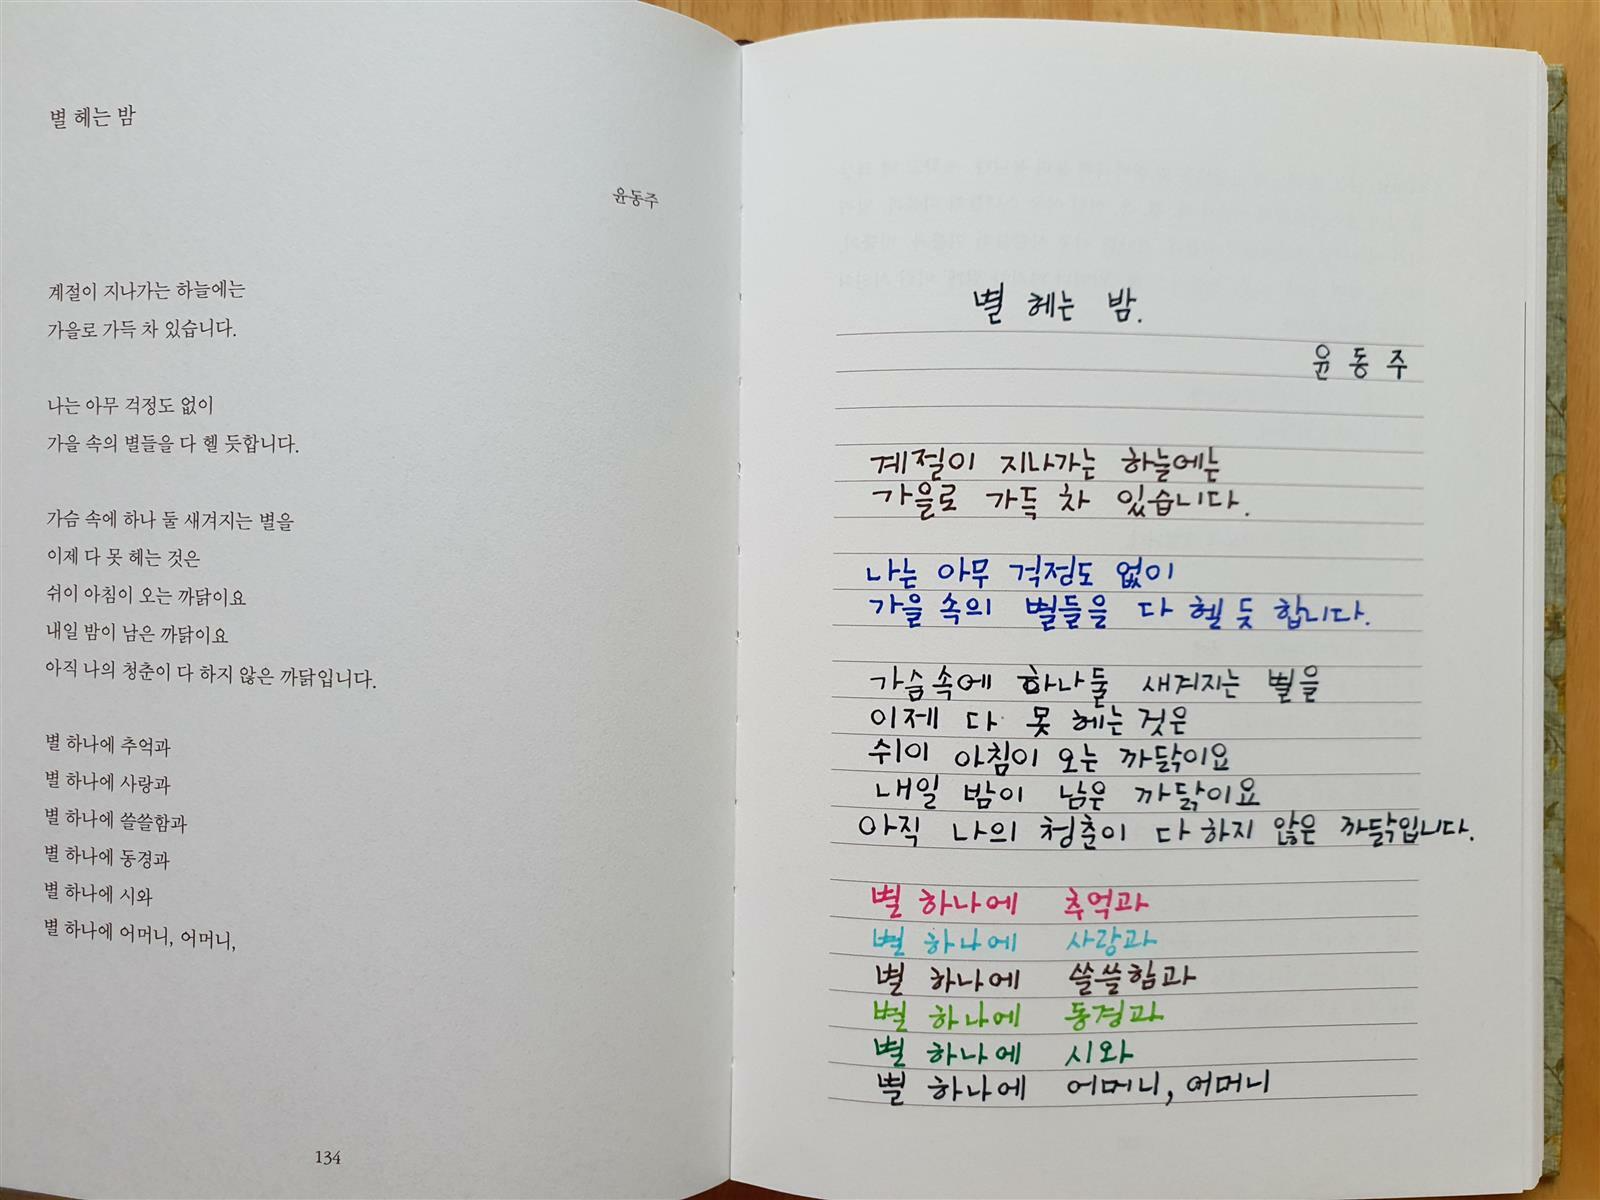 별 헤는 밤
윤동주
계절이 지나가는 하늘에는
가을로 가득 차 있습니다.
나는 아무 걱정도 없이
가을 속의 별들을 다 헬 듯합니다.
가슴 속에 하나 둘 새겨지는 별을
이제 다 못 헤는 것은
쉬이 아침이 오는 까닭이요
내일 밤이 남은 까닭이요
아직 나의 청춘이 다 하지 않은 까닭입니다.
별 하나에 추억과
별 하나에 사랑과
별 하나에 쓸쓸함과
별 하나에 동경과
별 하나에 시와
별 하나에 어머니, 어머니,
134
별 헤는 밤.
윤동주
계절이 지나가는 하늘에는
가을로 가득 차 있습니다.
나는 아무 걱정도 없이
가을 속의 별들을 다 헬 듯 합니다.
가슴속에 하나둘 새겨지는 별을
이제 다 못 헤는 것은
쉬이 아침이 오는 까닭이요
내일 밤이 남은 까닭이요
아직 나의 청춘이 다 하지 않은 까닭입니다.
별 하나에 추억과
별 하나에 사랑과
별 하나에 쓸쓸함과
별 하나에 동경과
별 하나에 시와
별 하나에 어머니, 어머니